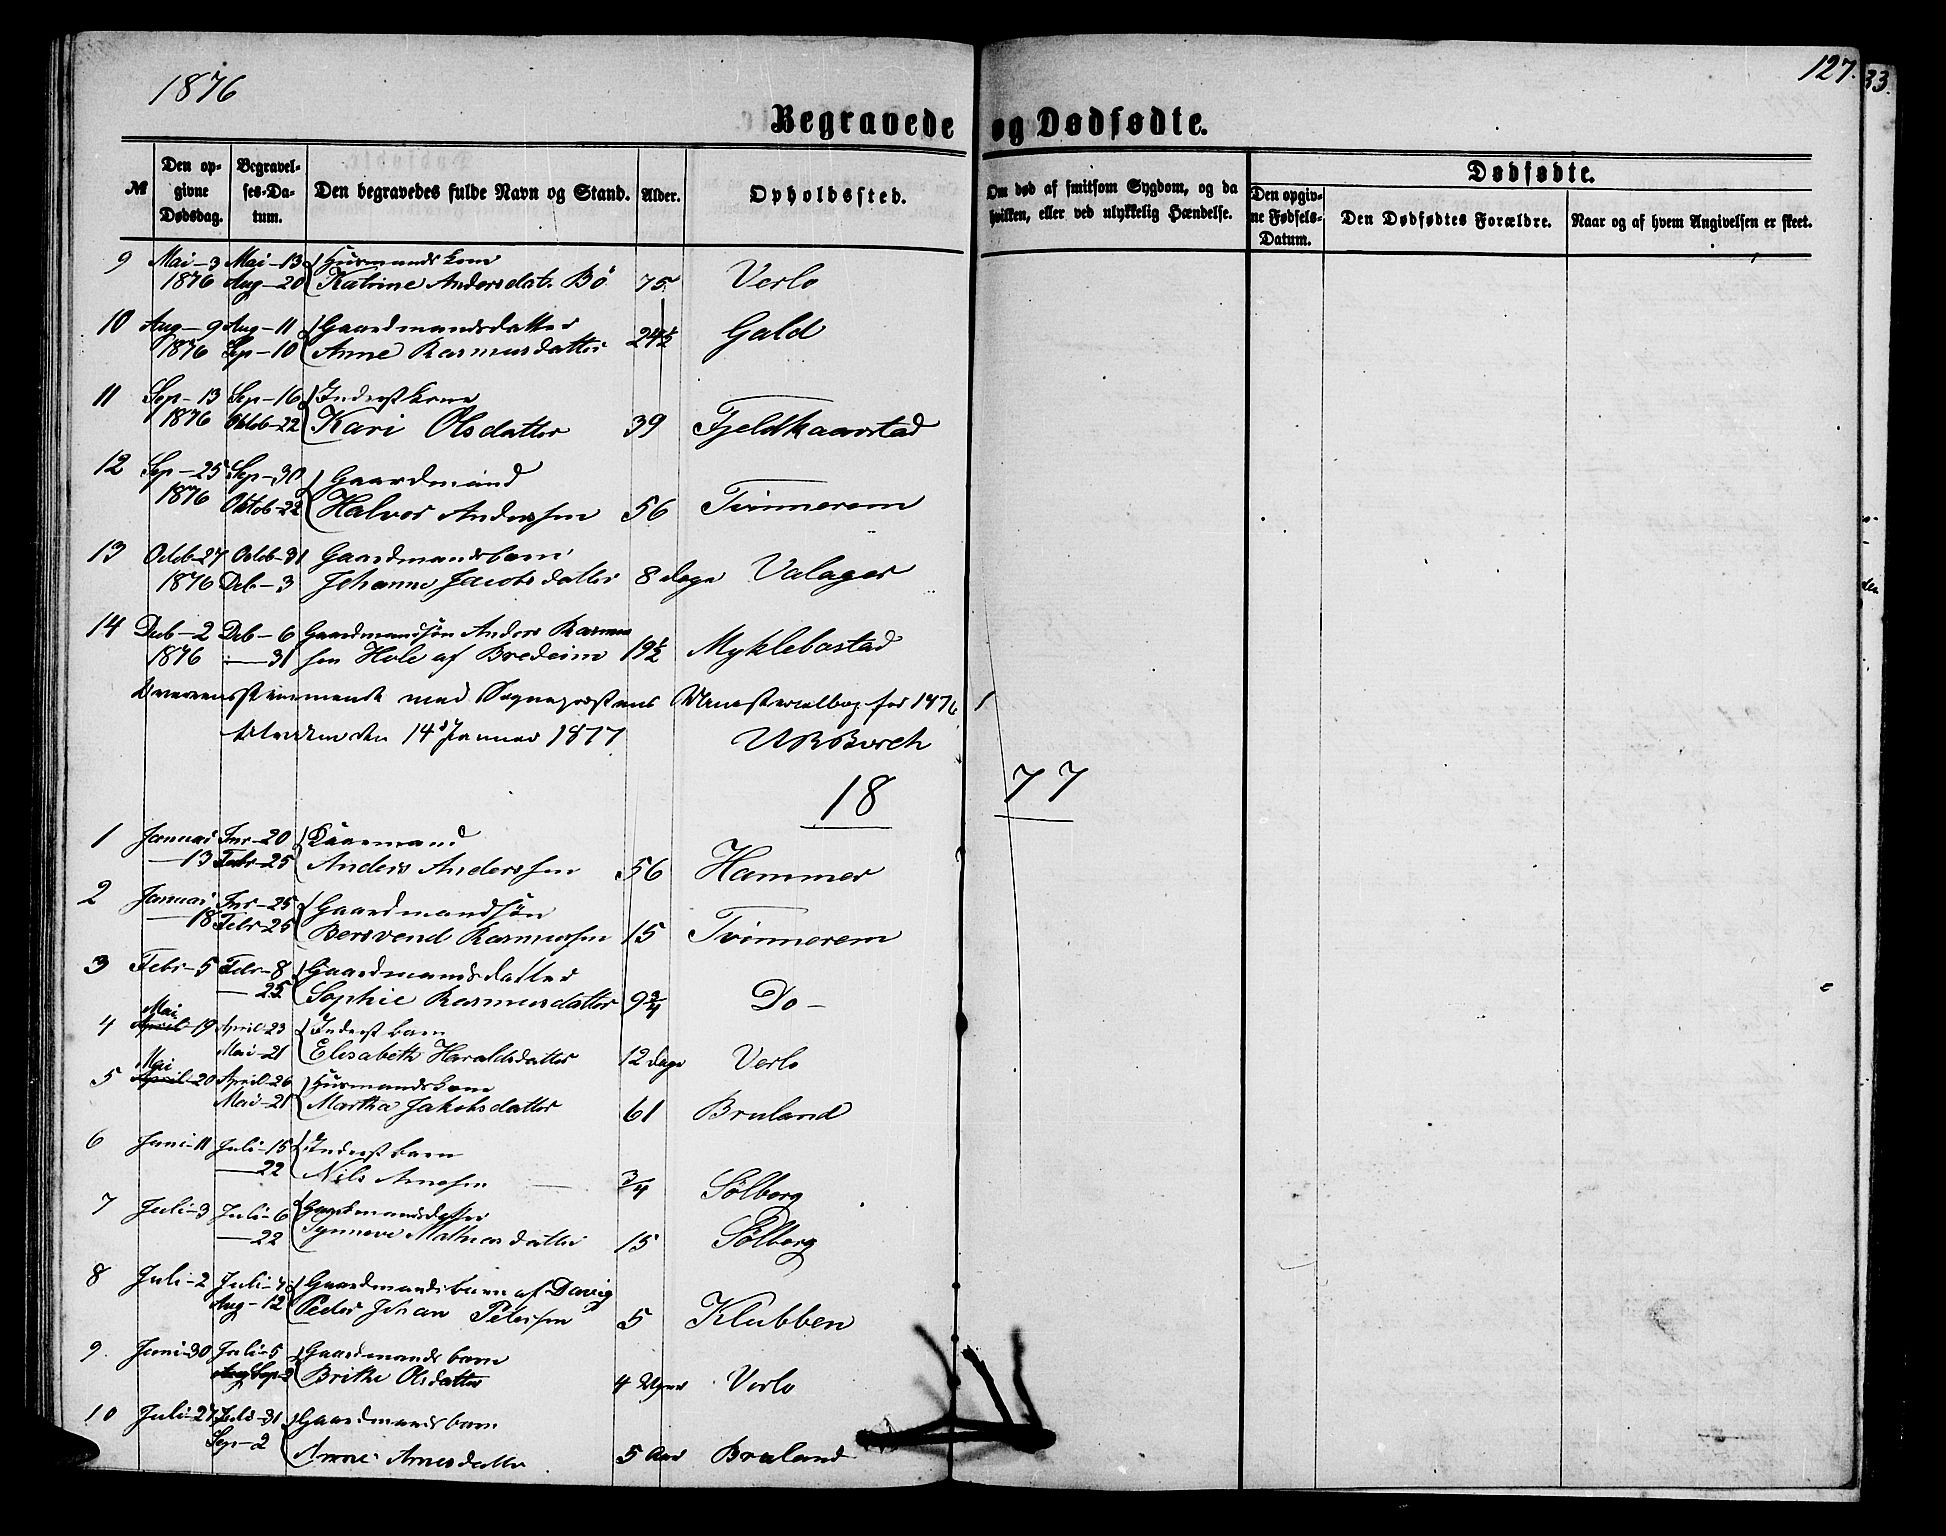 1876
127.
33.
Begravede og Dødfødte.
№
Den opgivne Dødsdag.
Begravelses-Datum.
Den begravedes fulde Navn og Stand.
Alder.
Opholdssted.
Om død af smitsom Sygdom, og da hvilken, eller ved ulykkelig Hændelse.
Dødfødte.
Den opgivne Fødsels-Datum.
Den Dødfødtes Forældre.
Naar og af hvem Angivelsen er skeet.
9 Mai-3 Mai-13 Husmandskone
1876 Aug-20 Katrine Andersdatr Bö 75 Verlo
10 Aug-9 Aug-11 Gaardmandsdatter
1876 Sep-10 Anne Rasmusdatter 24½ Gald
11 Sep-13 Sep-16 Inderstkone
1876 Oktob-22 Kari Olsdatter 39 Fjeldkaarstad
12 Sep-25 Sep-30 Gaardmand
1876 Oktob-22 Halvor Anderssen 56 Tvinnerem
13 Octob-27 Octob-31 Gaardmandsbarn
1876 Deb-3 Johanne Jacobsdatter 8 dage Valager
14 Deb-2 Deb-6 Gaardmandsön Anders Rasmus
1876 -31 sen Hole af Bredeim 19½ Myklebostad
Overensstemmende med Sognepræstens Ministerialbog for 1876
den 14d Januar 1877
1877
1 Januar Jnr-20 Kaarmand
-13 Febr-25 Anders Anderssen 56 Hammer
2 Januar Jnr-25 Gaardmandsön
-18 Febr-25 Bersvend Rasmussen 15 Tvinnerem
3 Febr-5 Febr-8 Gaardmandsdatter
-25 Sophie Rasmusdatter 9¾ Do-
4 Mai April-19 April-23 Inderstbarn
Mai-21 Elisabeth Haraldsdatter 12 dage Verlo
5 Mai April-20 April-26 Husmandskone
Mai-21 Martha Jakobsdatter 61 Bruland
6 Juni-11 Juli-15 Inderstbarn
-22 Nils Arnesen ¾ Sölberg
7 Juli-3 Juli-6 Gaardmandsdatter
-22 Synneve Mathiasdatter 15 Sölberg
8 Juli-2 Juli-7 Gaardmandsbarn af Davig
Aug-12 Peder Johan Petersen 5 Klubben
9. Juni-30 Juli-5 Gaardmandsbarn
Sep-2 Brithe Olsdatter 4 Uger Verlo
10 Juli-27 Juli-31 Gaardmandsbarn
Sep-2 Anne Arnesdatter 5 Aar Bruland